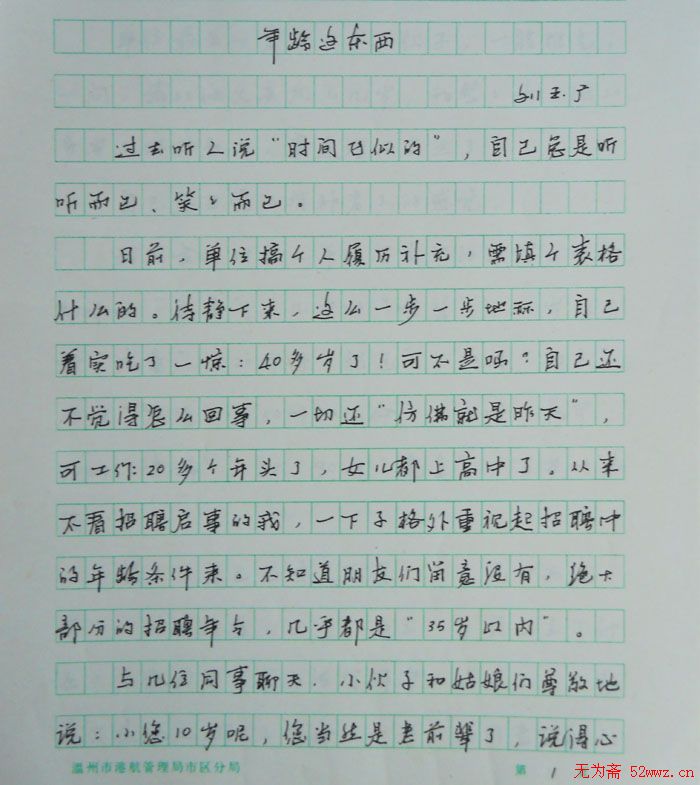 年龄这东西
刘玉广
过去听人说“时间飞似的”，自己总是听
听而已、笑笑而已。
日前，单位搞个人履历补充，需填个表格
什么的。待静下来，这么一步一步地一，自己
着实吃了一惊：40多岁了！可不是吗？自己还
不觉得怎么回事，一切还“仿佛就是昨天”，
可工作20多个年头了，女儿都上高中了。从来
不看招聘启事的我，一下子格外重视起招聘中
的年龄条件来。不知道朋友们留意没有，绝大
部分的招聘年令，几乎都是“35岁以内”。
与几位同事聊天，小伙子和姑娘们尊敬地
说：小您10岁呢，您当然是老前辈了，说得心
温州市港航管理局市区分局 第 1
无为斋 52wwz.cn